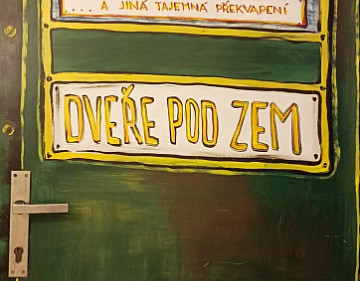 .... A JINÁ TAJEMNÁ PŘEKVAPENÍ
DVEŘE POD ZEM